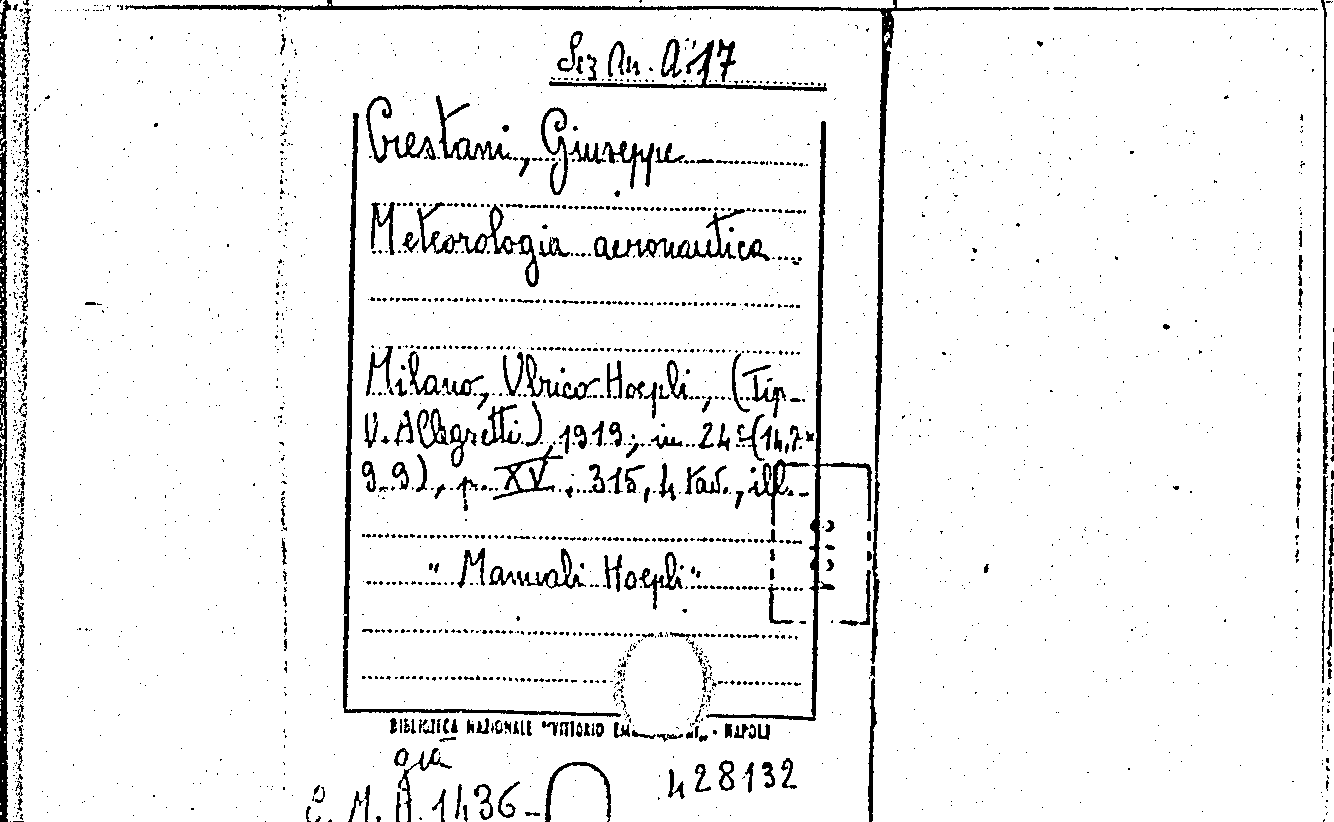 Sez Au. A. 17
Crestani, Giuseppe
Meteorologia aeronautica
Milano, Ulrico Hoepli, (Tip.
V. Allegretti), 1919; in 24° (14,7×
9.9), p. XV, 315, 4 tav., ill.
"Manuali Hoepli"
BIBLIOTECA NAZIONALE "VITTORIO - NAPOLI
già
C. M. A. 1436
428132